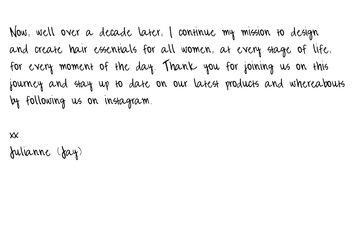 Now, well over a decade later, I continue my mission to design
and create hair essentials for all women, at every stage of life,
for every moment of the day. Thank you for joining us on this
journey and stay up to date on our latest products and whereabouts
by following us on instagram.
xx
Julianne (Jay)